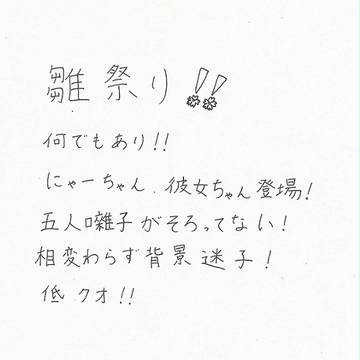 雛祭り!!
何でもあり!!
にゃーちゃん、彼女ちゃん登場!
五人囃子がそろってない!
相変わらず背景迷子!
低クオ!!